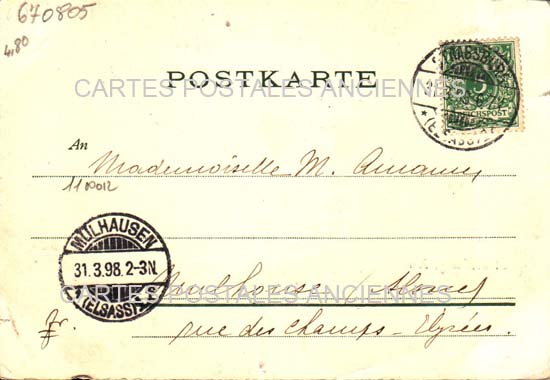 670805
4,80
POSTKARTE
CARTES POSTALES ANCIENNES
STRASSBURG
(ELSASS)
5
REICHSPOST
An
Mademoiselle M. Amann,
MÜLHAUSEN
31.3.98.2-3N.
(ELSASS)
Mulhouse
CARTES POSTALES ANCIENNES
rue des Champs-Elysées.